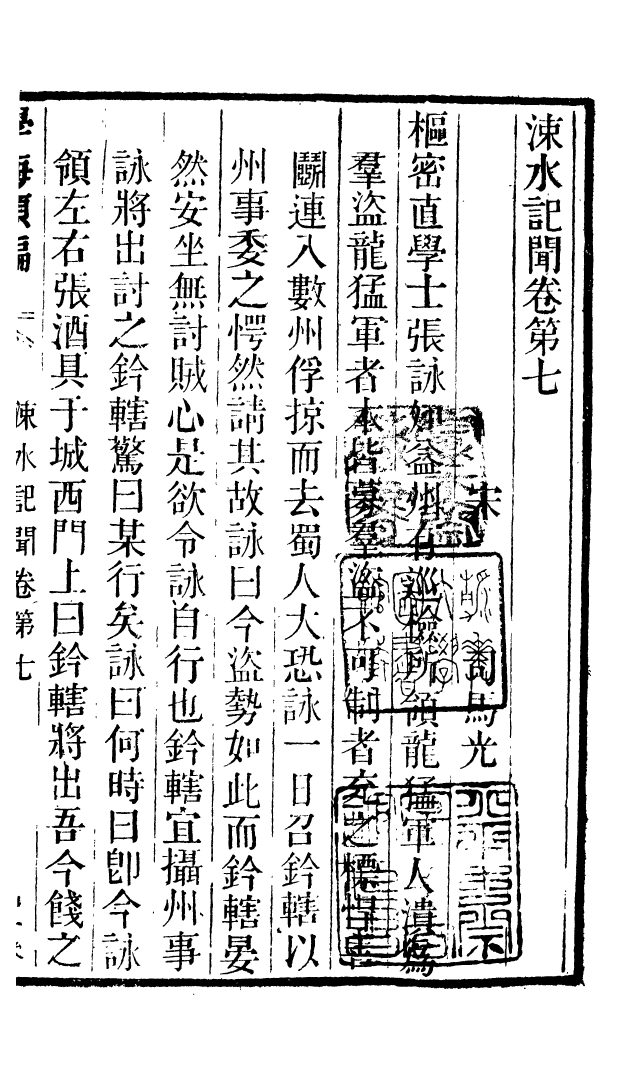 涑水記聞卷第七
宋 司馬光
樞密直學士張詠知益州有巡檢所領龍猛軍人潰爲
羣盜龍猛軍者本皆募羣盜不可制者充之慓悍善
鬭連入數州俘掠而去蜀人大恐詠一日召鈐轄以
州事委之愕然請其故詠曰今盜勢如此而鈐轄晏
然安坐無討賊心是欲令詠自行也鈐轄宜攝州事
詠將出討之鈐轄驚曰某行矣詠曰何時曰卽今詠
領左右張酒具于城西門上曰鈐轄將出吾今餞之
學海類編 涑水記聞卷第七